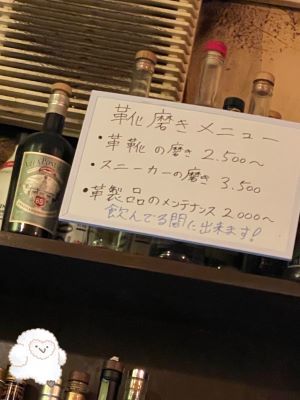 靴磨きメニュー
・革靴の磨き 2.500〜
・スニーカーの磨き 3.500
・革製品のメンテナンス 2000〜
飲んでる間に出来ます!